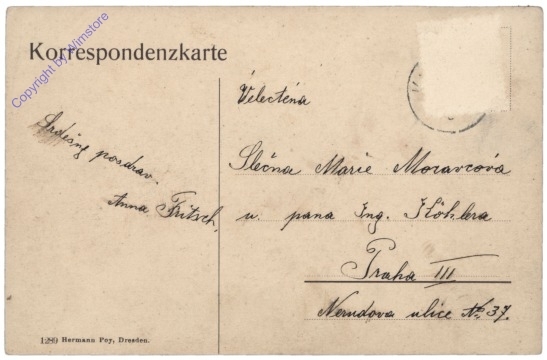 Korrespondenzkarte
Copyright by Wimstore
Srdečný pozdrav.
Anna Fritsch.
Velectěná
Slečna Marie Moravcová
u pana Ing. Köhlera
Praha III
Nerudova ulice No 37.
1289 Hermann Poy, Dresden.